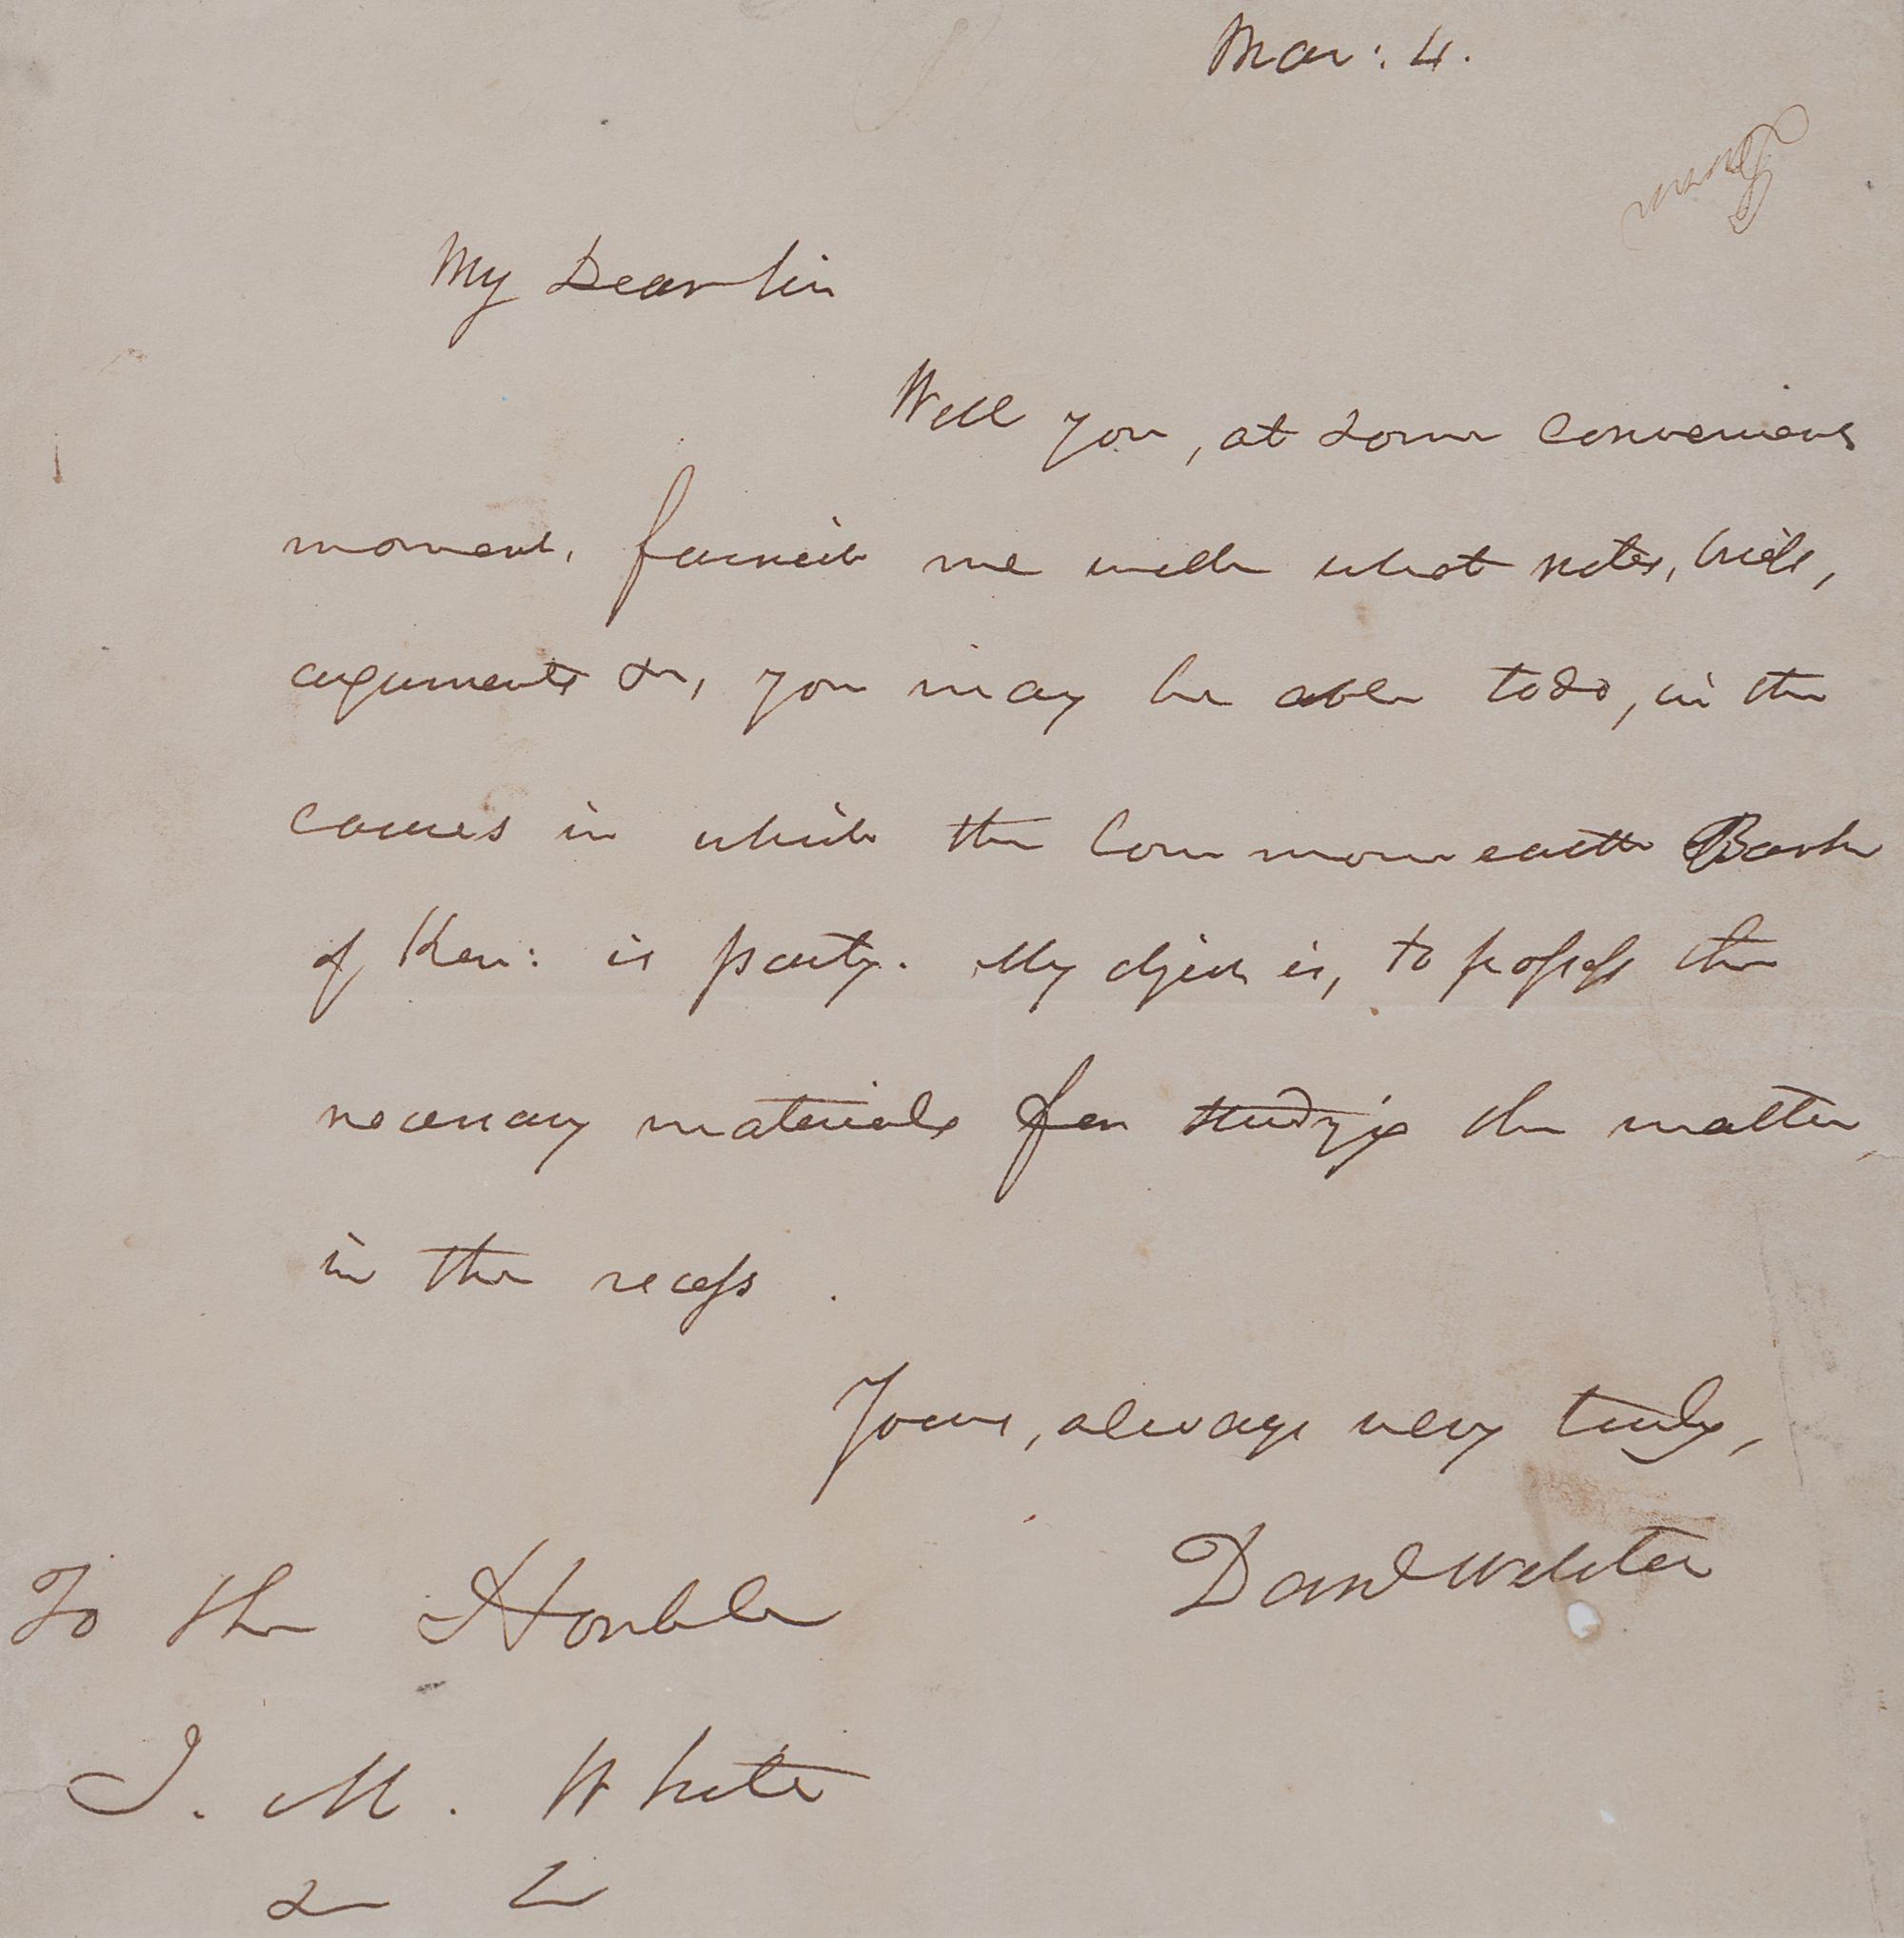 Mar: 4.
My Dear Sir
Will you, at some convenient
moment, furnish me with what notes, briefs,
arguments &c, you may be able to do, in the
causes in which the Commonwealth Bank
of Ken: is party. My object is, to possess the
necessary materials for studying the matter,
in the recess.
Yours, always very truly,
Danl Webster
To the Honble
J. M. White